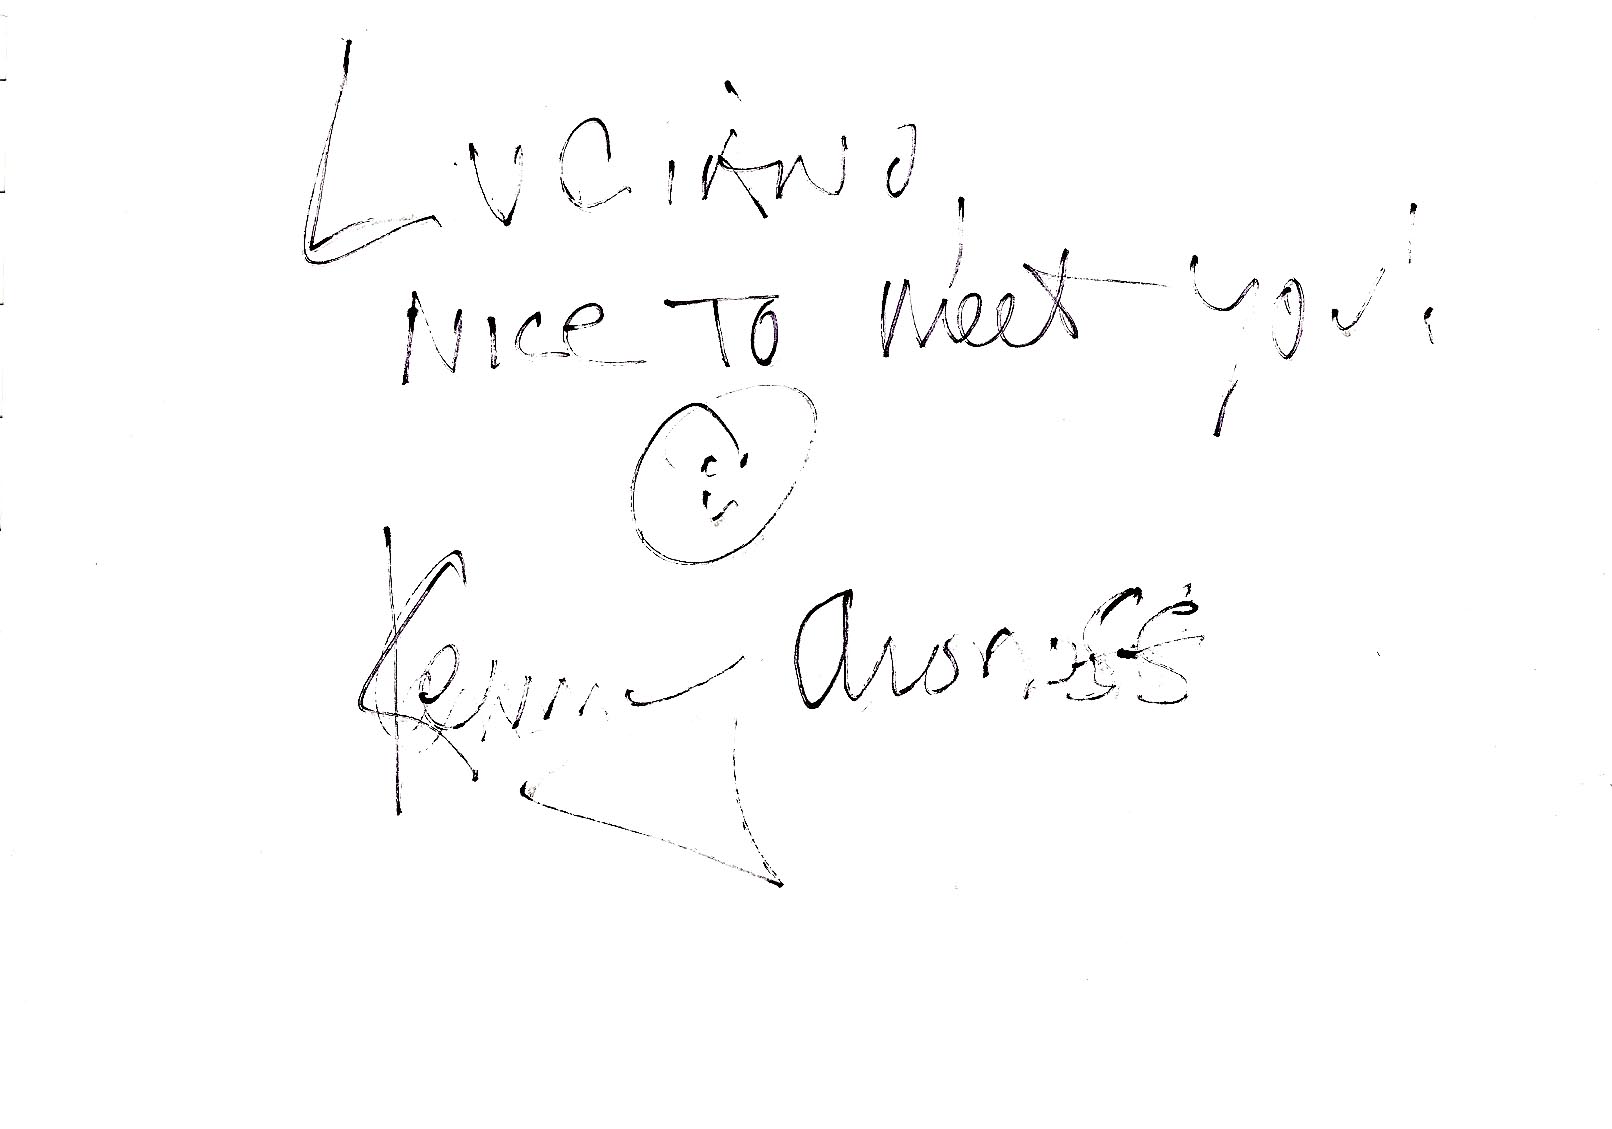 Luciano,
Nice To Meet you!
Kenny Aronoff